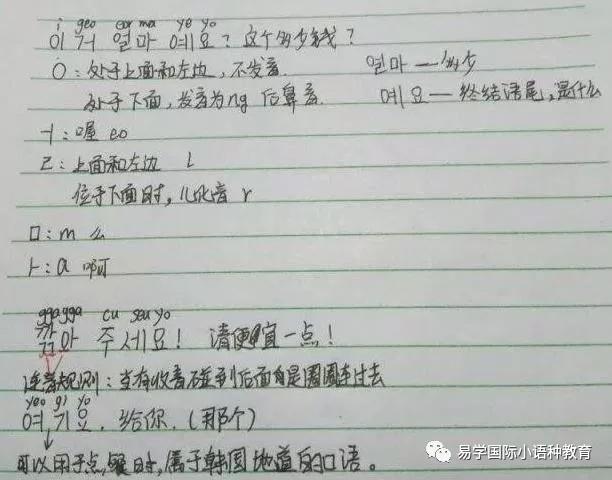 i geo eor ma ye yo
이 거 얼마 예요? 这个多少钱?
ㅇ: 处于上面和左边,不发音. 얼마 — 多少
处于下面,发音为ng 后鼻音. 예요 — 终结语尾,是什么
ㅓ: 喔 eo
ㄹ: 上面和左边 l
位于下面时,儿化音 r
ㅁ: m 么
ㅏ: a 啊
gga gga cu seu yo
깎아 주세요! 请便宜一点!
连音规则: 当有收音碰到后面是圈圈连过去
yeo gi yo
여기요. 给你.(那个)
可以用于点餐时,属于韩国地道的口语。
易学国际小语种教育